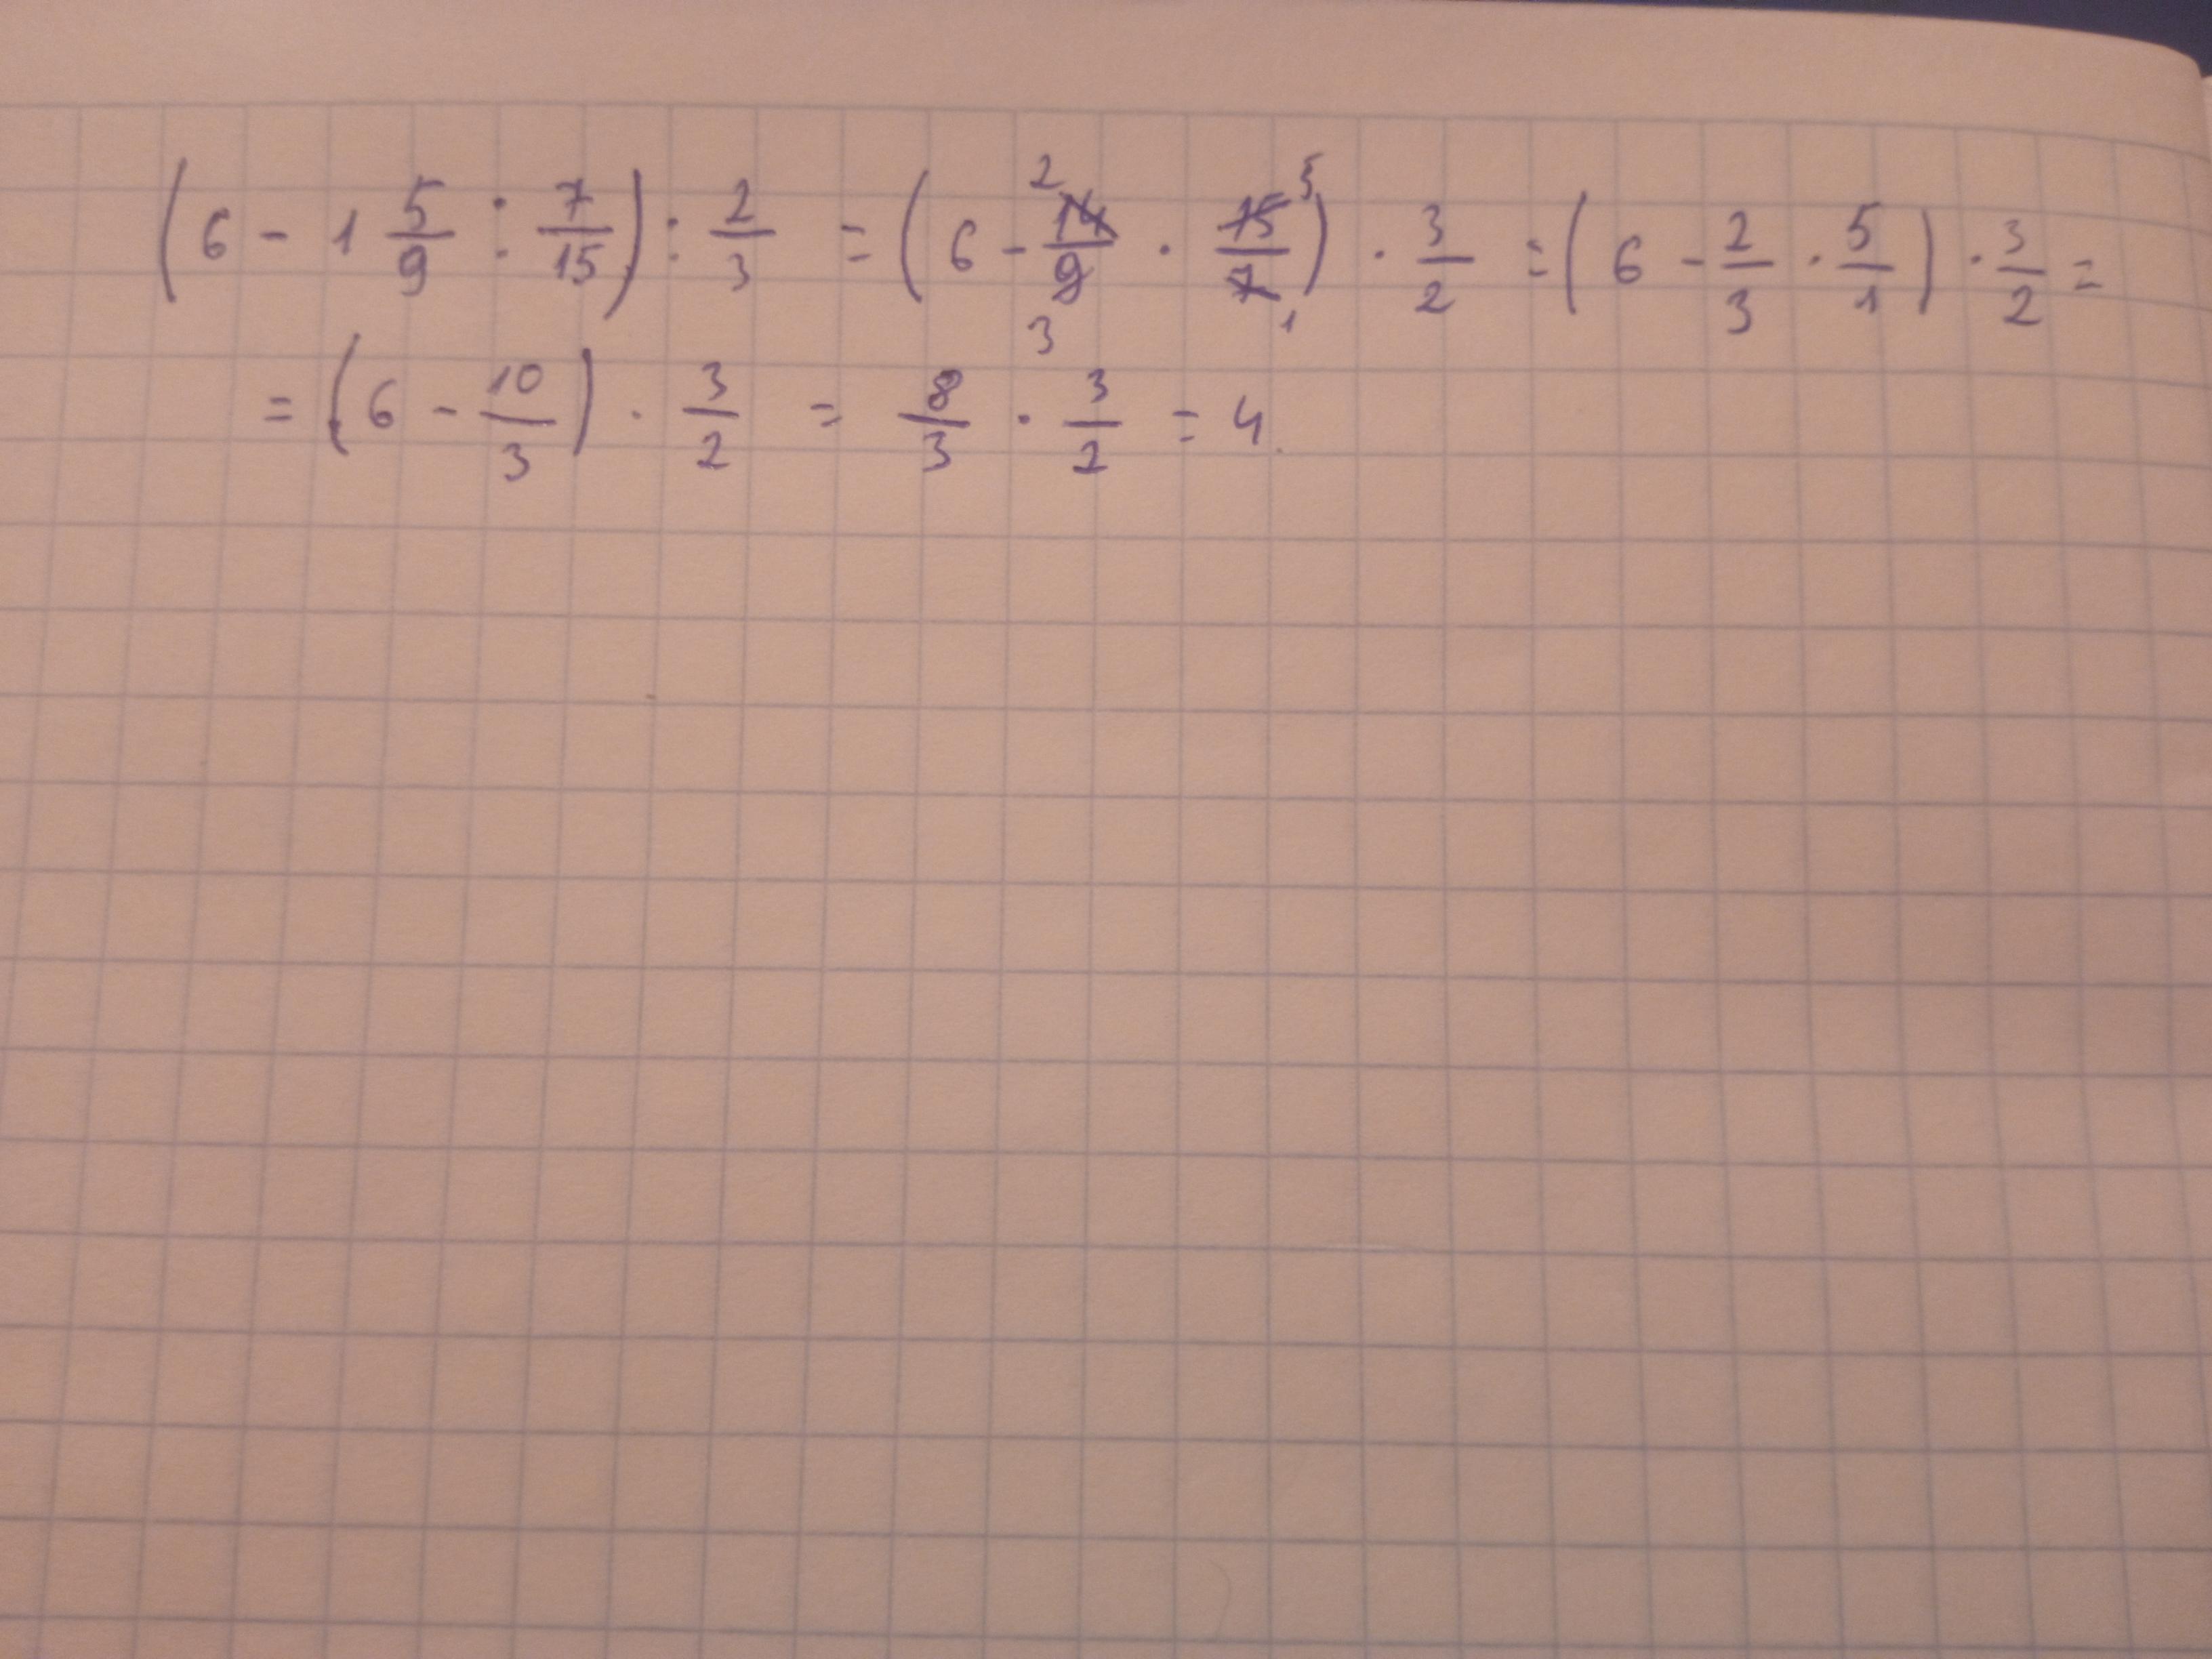 (6 - 1 5/9 : 7/15) : 2/3 = (6 - 14/9 · 15/7) · 3/2 = (6 - 2/3 · 5/1) · 3/2 =
= (6 - 10/3) · 3/2 = 8/3 · 3/2 = 4.